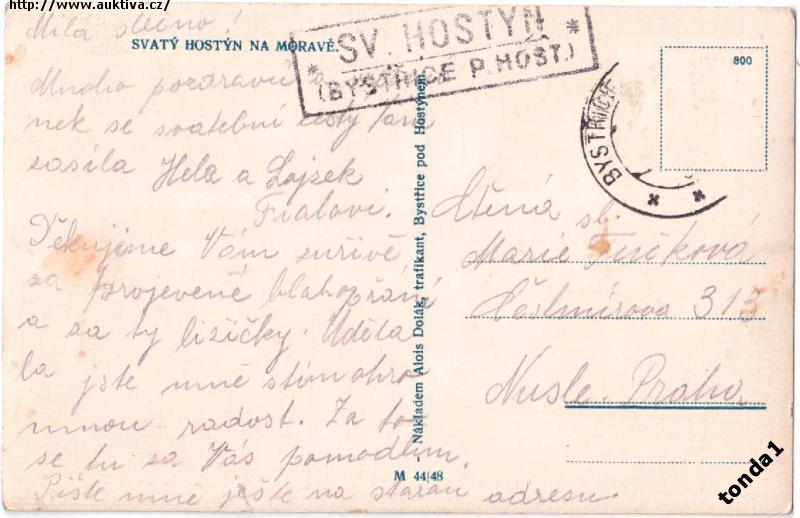 http://www.auktiva.cz/
Milá slečno!
SVATÝ HOSTÝN NA MORAVĚ.
* SV. HOSTÝN *
(BYSTŘICE P. HOST.)
800
BYSTŘICE
Mnoho pozdravů a
nek se svatební cesty Vám
zasílá Hela a Lojzek
Fialovi.
Děkujeme Vám
za projevené blahopřání
a za ty lžičky. Uděla
la jste mně s tím ohro
mnou radost. Za to
se tu za Vás pomodlím.
Pište mně ještě na starou adresu
Nákladem Alois Dolák, trafikant, Bystřice pod Hostýnem
M 44/48
Ctěná
sl.
Marie
313
Nusle. Praha
tonda1